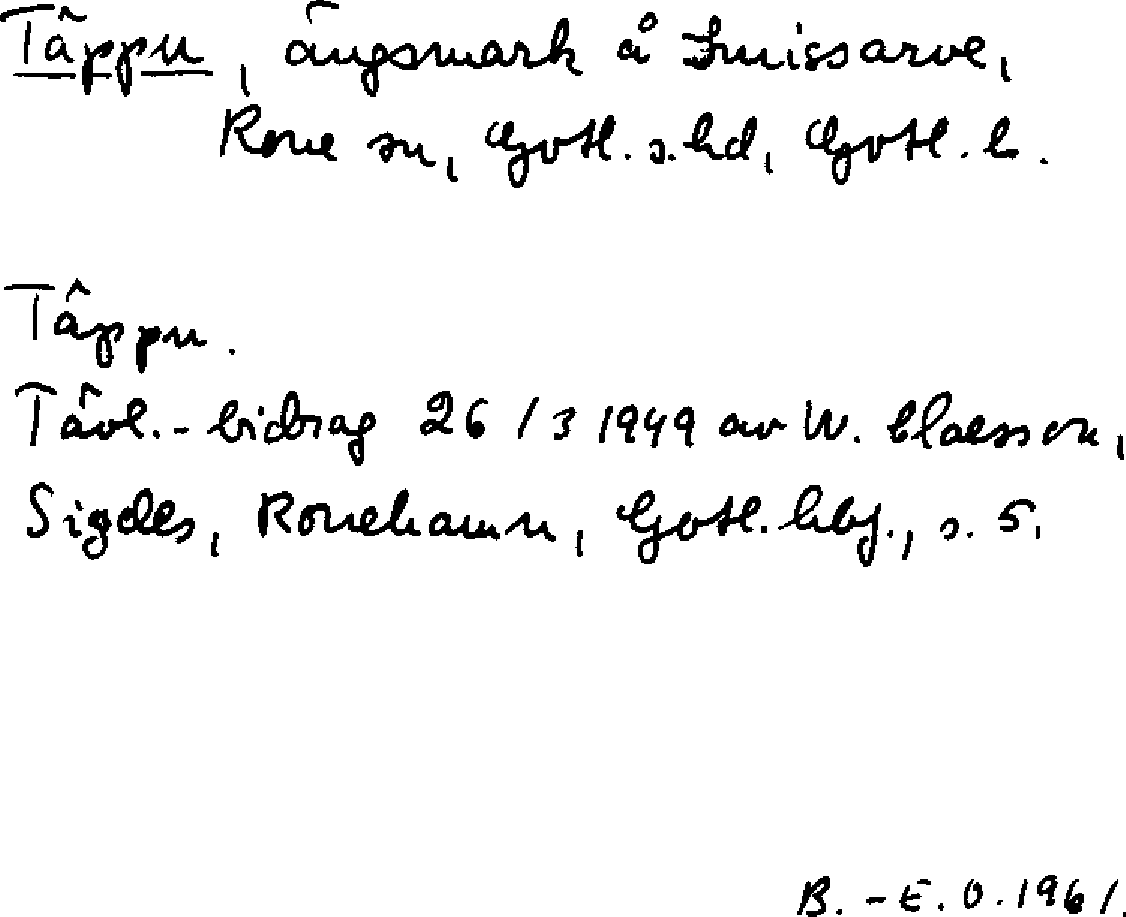 Täppu, ängsmark å Smissarve,
Rone sn, Gotl. s. hd, Gotl. l.
Täppu.
Tävl.-bidrag 26/3 1949 av W. Claesson,
Sigdes, Ronehamn, Gotl. hbf., s. 5.
B.-E. O. 1961.